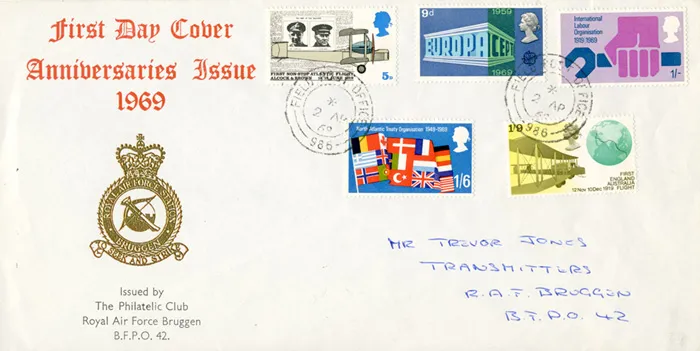 First Day Cover
Anniversaries Issue
1969
ROYAL AIR FORCE STATION
BRUGGEN
TO SEEK AND STRIKE
Issued by
The Philatelic Club
Royal Air Force Bruggen
B.F.P.O. 42.
FIRST NON-STOP ATLANTIC FLIGHT
ALCOCK & BROWN
5D
9d
1969
EUROPA CEPT
1969
International
Labour
Organisation
1919/1969
1/-
FIELD POST OFFICE
*
2 AP
69
986
FIELD POST OFFICE
*
2 AP
69
986
North Atlantic Treaty Organisation 1949-1969
1/6
1/9
FIRST
ENGLAND
AUSTRALIA
FLIGHT
12 Nov 10 Dec 1919
MR TREVOR JONES
TRANSMITTERS
R.A.F BRUGGEN
B.F.P.O. 42